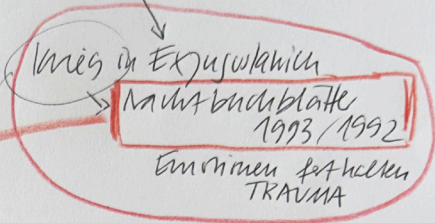 Krieg in Exjugoslawien
Nachtbuchblätter
1993/1992
Emotionen festhalten
TRAUMA